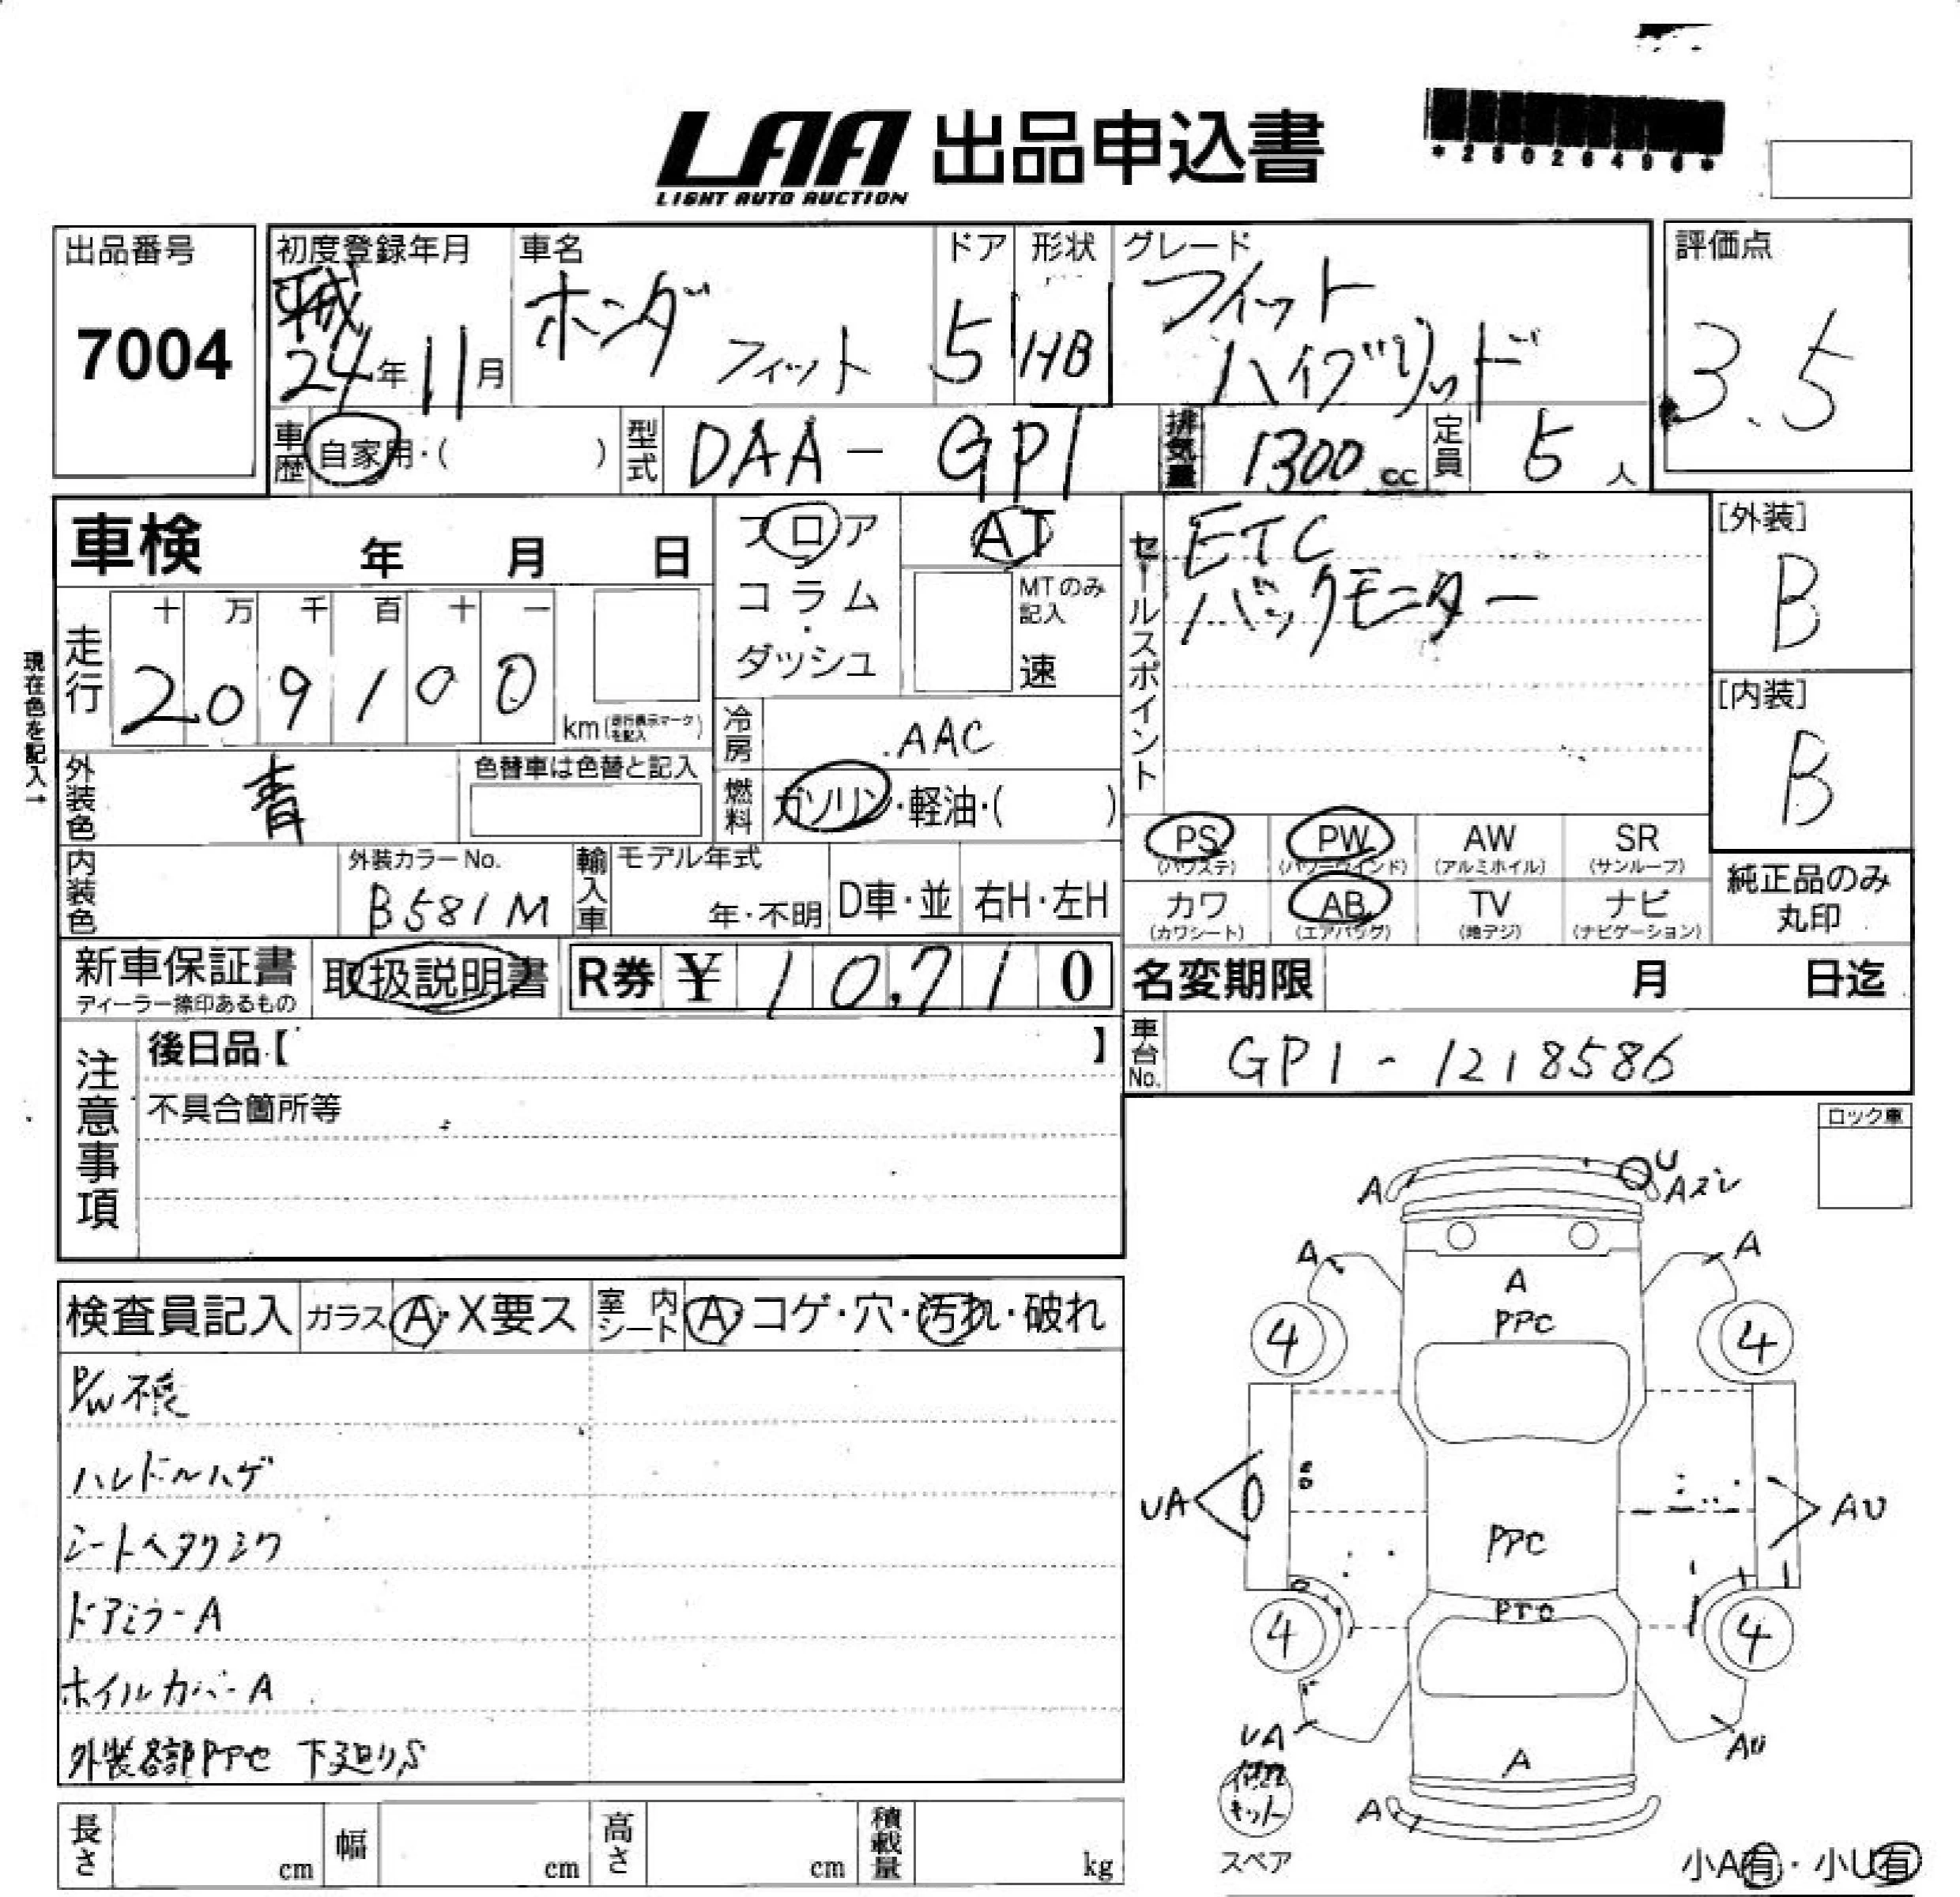 LAA 出品申込書
LIGHT AUTO AUCTION
出品番号
7004
初度登録年月
平成
24年11月
車名
ホンダ
フィット
ドア
5
形状
HB
グレード
フィット
ハイブリッド
評価点
3.5
車歴
自家用・( )
型式
DAA-GP1
排気量
1300 cc
定員
5人
車検 年 月 日
フロア
コラム・
ダッシュ
AT
MTのみ
記入
速
セールスポイント
ETC
バックモニター
[外装]
B
[内装]
B
現在色を記入→
走行
十 万 千 百 十 一
2 0 9 1 0 0
km
冷房
AAC
燃料
ガソリン・軽油・( )
外装色
青
色替車は色替と記入
内装色
外装カラーNo.
B581M
輸入車
モデル年式
年・不明
D車・並
右H・左H
PS
(パワステ)
PW
(パワーウインド)
AW
(アルミホイル)
SR
(サンルーフ)
カワ
(カワシート)
AB
(エアバッグ)
TV
(地デジ)
ナビ
(ナビゲーション)
純正品のみ
丸印
新車保証書
ディーラー捺印あるもの
取扱説明書
R券 ¥ 10,710
名変期限 月 日迄
車台No.
GP1-1218586
注意事項
後日品【 】
不具合箇所等
ロック車
検査員記入
ガラス A・X要ス
室内シート A・コゲ・穴・汚れ・破れ
P/W不良
ハンドルハゲ
シートヘタリシワ
ドアミラーA
ホイルカバーA
外装各部 下廻りS
長さ cm
幅 cm
高さ cm
積載量 kg
U
A
Aズレ
A
A
A
PPC
4
4
UA
PPC
AU
4
4
UA
AU
A
A
修理
キット
スペア
小A有・小U有